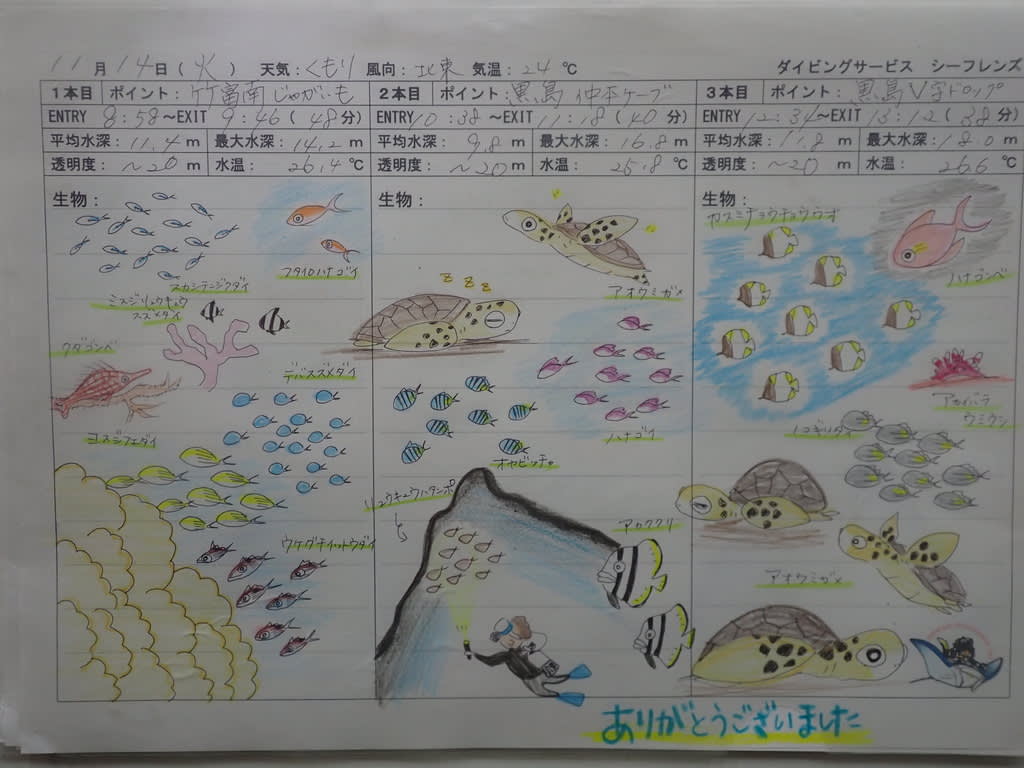 11月14日(火) 天気:くもり 風向:北東 気温:24℃ ダイビングサービス シーフレンズ
1本目 ポイント:竹富南じゃがいも 2本目 ポイント:黒島 仲本ケーブ 3本目 ポイント:黒島V字ドロップ
ENTRY 8:58~EXIT 9:46(48分) ENTRY 10:38~EXIT 11:18(40分) ENTRY 12:34~EXIT 13:12(38分)
平均水深:11.4m 最大水深:14.2m 平均水深:9.8m 最大水深:16.8m 平均水深:11.8m 最大水深:18.0m
透明度:~20m 水温:26.4℃ 透明度:~20m 水温:25.8℃ 透明度:~20m 水温:26.6℃
生物:
フタイロハナゴイ
スカシテンジクダイ
ミスジリュウキュウ
スズメダイ
クダゴンベ
デバスズメダイ
ヨスジフエダイ
ウケグチイットウダイ
生物:
アオウミガメ
zzz
ハナゴイ
オヤビッチャ
リュウキュウハタンポ
アカククリ
生物:
カスミチョウチョウウオ
ハナゴンベ
アカイバラ
ウミウシ
ノコギリダイ
アオウミガメ
ありがとうございました